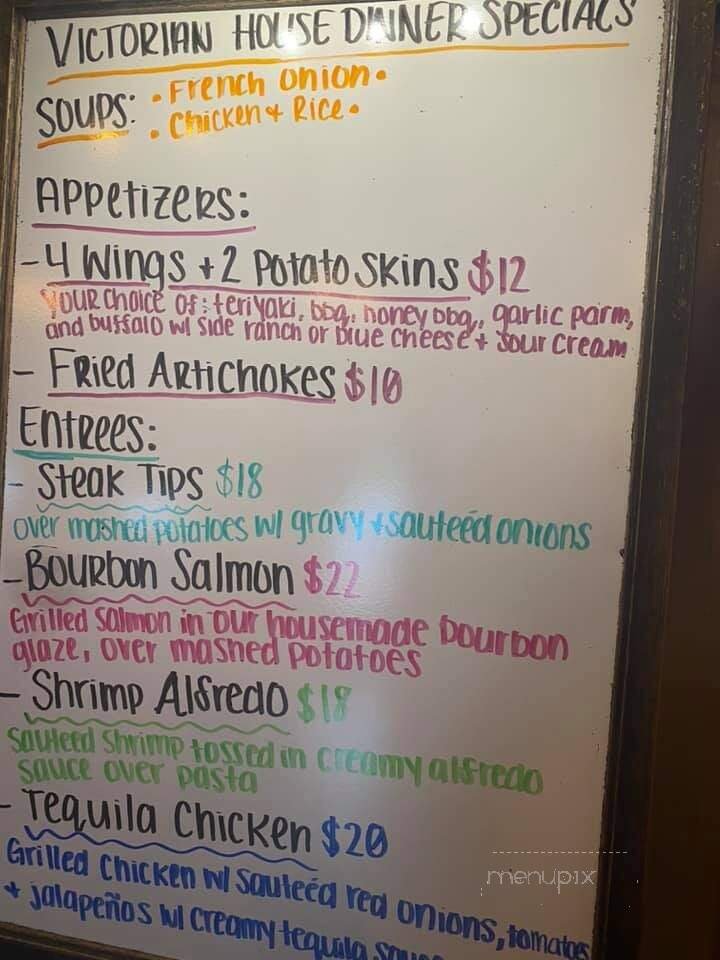 VICTORIAN HOUSE DINNER SPECIALS
SOUPS: • French Onion •
• Chicken + Rice •
Appetizers:
- 4 Wings + 2 Potato Skins $12
Your choice of: teriyaki, bbq, honey bbq, garlic parm,
and buffalo w/ side ranch or blue cheese + sour cream
- Fried Artichokes $10
Entrees:
- Steak Tips $18
over mashed potatoes w/ gravy + sauteéd onions
- Bourbon Salmon $22
Grilled Salmon in our housemade bourbon
glaze, over mashed potatoes
- Shrimp Alfredo $18
Sauteed Shrimp tossed in creamy alfredo
sauce over pasta
- Tequila Chicken $20
Grilled Chicken w/ Sauteéd red onions, tomatoes
+ jalapeños w/ creamy tequila
menupix